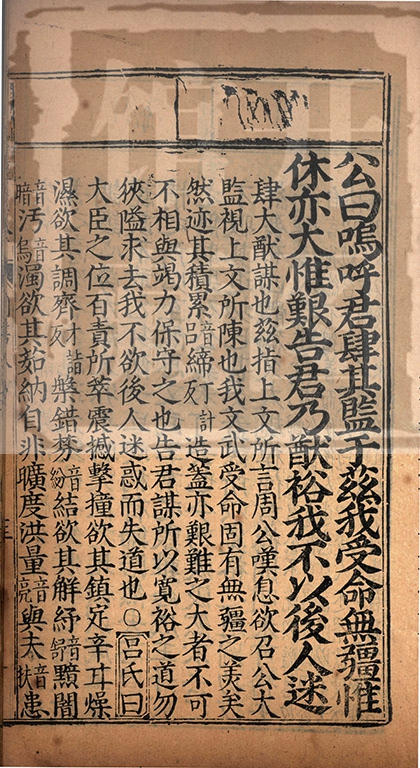 公曰嗚呼君肆其監于茲我受命無疆惟
休亦大惟艱告君乃猷裕我不以後人迷
肆大猷謀也茲指上文所言周公嘆息欲召公大
監視上文所陳也我文武受命固有無疆之美矣
然迹其積累音呂締丁計反造蓋亦艱難之大者不可
不相與竭力保守之也告君謀所以寬裕之道勿
狹隘求去我不欲後人迷惑而失道也○呂氏曰
大臣之位百責所萃震撼擊撞欲其鎮定辛甘燥
濕欲其調齊才詣反槃錯棼音紛結欲其解紓音舒黯闇
音暗汚音烏濁欲其茹納自非曠度洪量音亮與夫音扶患